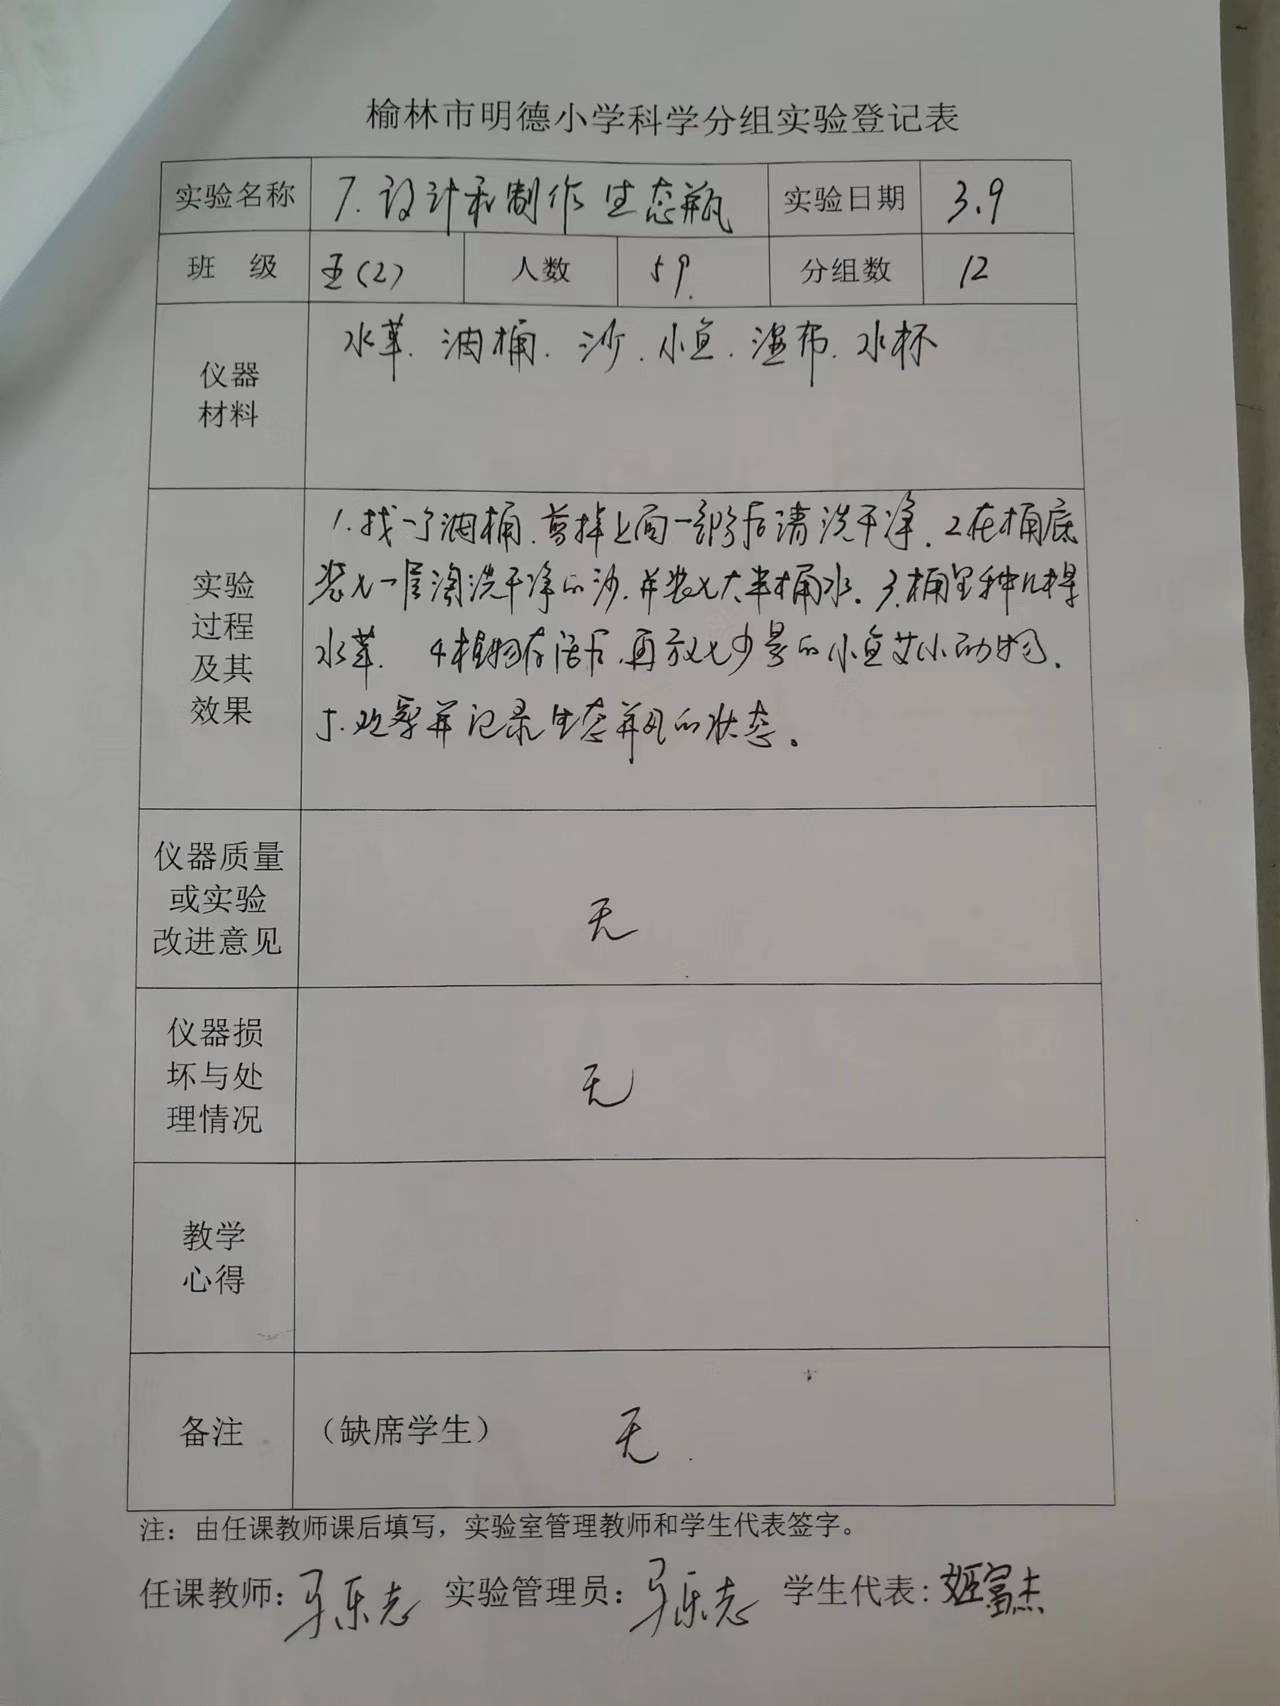 榆林市明德小学科学分组实验登记表
实验名称 7.设计和制作生态瓶 实验日期 3.9
班 级 五(2) 人数 59. 分组数 12
水草.油桶.沙.小鱼.湿布.水杯
仪器
材料
1.找一个油桶.剪掉上面一部分后清洗干净.2.在桶底
装入一层淘洗干净的沙.并装入大半桶水.3.桶里种几棵
水草. 4.植物存活后.再放入少量的小鱼 小动物.
5.观察并记录生态瓶的状态。
实验
过程
及其
效果
仪器质量
或实验
改进意见
无
仪器损
坏与处
理情况
无
教学
心得
备注 (缺席学生) 无.
注：由任课教师课后填写，实验室管理教师和学生代表签字。
任课教师:马乐志 实验管理员:马乐志 学生代表:姬富杰